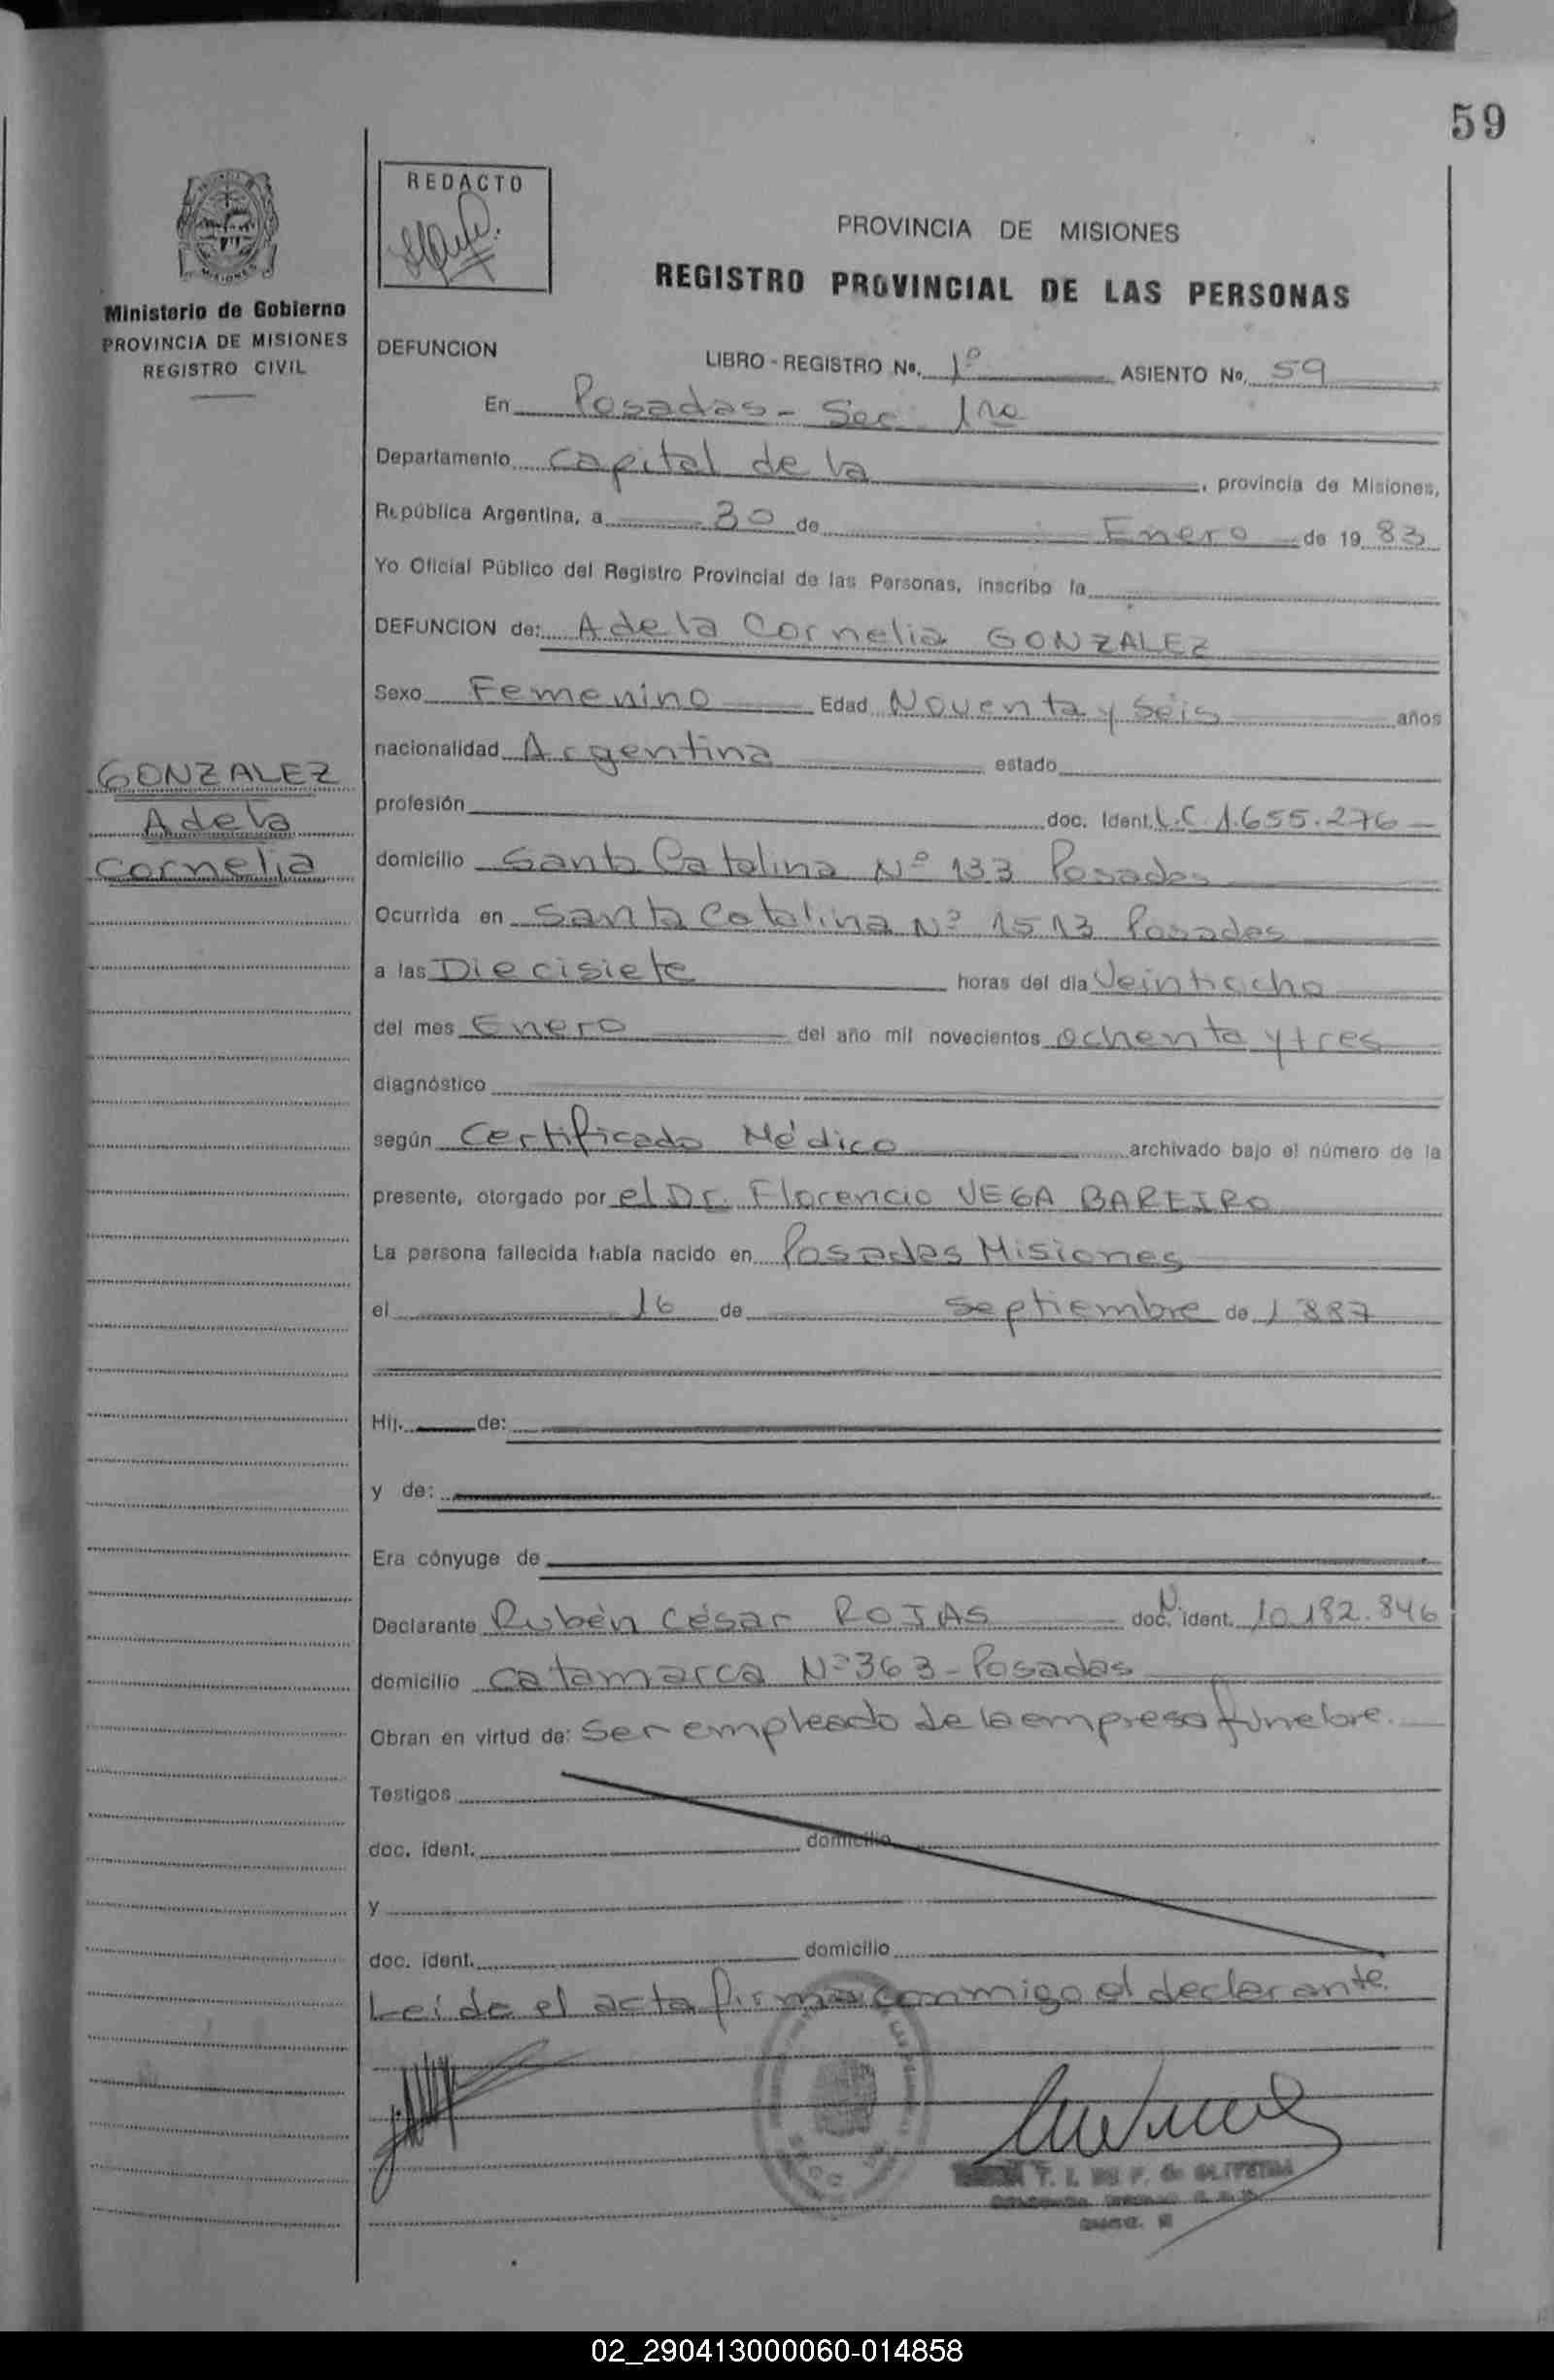 59
REDACTO
PROVINCIA DE MISIONES
REGISTRO PROVINCIAL DE LAS PERSONAS
Ministerio de Gobierno
PROVINCIA DE MISIONES
REGISTRO CIVIL
DEFUNCION
LIBRO - REGISTRO No. 1º ASIENTO No. 59
En Posadas - Sec. 1ra
Departamento Capital de la , provincia de Misiones,
República Argentina, a 30 de Enero de 1983
Yo Oficial Público del Registro Provincial de las Personas, inscribo la
DEFUNCION de: Adela Cornelia GONZALEZ
Sexo Femenino Edad Noventa y Séis años
nacionalidad Argentina estado
GONZALEZ
Adela
Cornelia
profesión doc. Ident. L.C 1.655.276
domicilio Santa Catalina Nº 133 Posadas
Ocurrida en Santa Catalina Nº 1513 Posadas
a las Diecisiete horas del día Veintiocho
del mes Enero del año mil novecientos ochenta y tres
diagnóstico
según Certificado Médico archivado bajo el número de la
presente, otorgado por el Dr. Florencio VEGA BAREIRO
La persona fallecida había nacido en Posadas Misiones
el 16 de Septiembre de 1887
Hij. de:
y de:
Era cónyuge de
Declarante Rubén César ROJAS doc. N ident. 10.182.846
domicilio Catamarca Nº 363 - Posadas
Obran en virtud de: Ser empleado de la empresa fúnebre.
Testigos
doc. ident. domicilio
y
doc. ident. domicilio
Leída el acta firma conmigo el declarante.
T. I. F. de OLIVEIRA
02_290413000060-014858